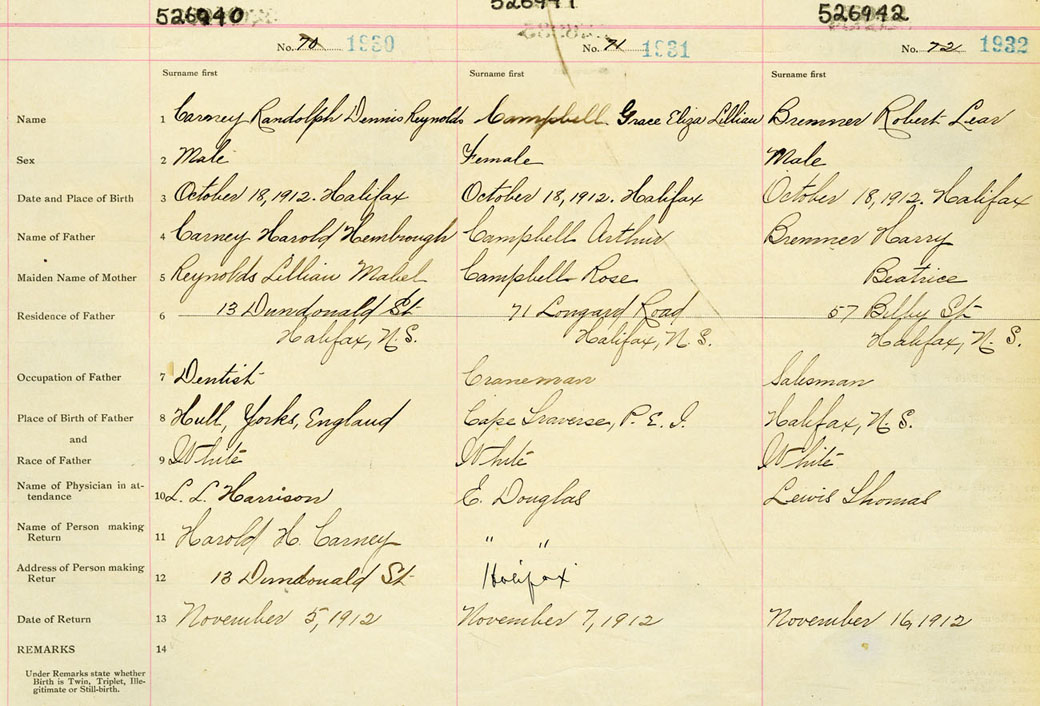 526940 526941 526942
No. 70 1930 No. 71 1931 No. 72 1932
Surname first Surname first Surname first
Name 1 Carney Randolph Dennis Reynolds Campbell Grace Eliza Lillian Bremner Robert Lear
Sex 2 Male Female Male
Date and Place of Birth 3 October 18, 1912. Halifax October 18, 1912. Halifax October 18, 1912. Halifax
Name of Father 4 Carney Harold Hembrough Campbell Arthur Bremner Harry
Maiden Name of Mother 5 Reynolds Lillian Mabel Campbell Rose Beatrice
Residence of Father 6 13 Dundonald St 71 Longard Road 57 Bilby St
Halifax, N.S. Halifax, N.S. Halifax, N.S.
Occupation of Father 7 Dentist Craneman Salesman
Place of Birth of Father 8 Hull, Yorks, England Cape Traverse, P.E.I. Halifax, N.S.
and
Race of Father 9 White White White
Name of Physician in at-
tendance 10 L. L. Harrison E. Douglas Lewis Thomas
Name of Person making
Return 11 Harold H. Carney " "
Address of Person making
Retur 12 13 Dundonald St Halifax
Date of Return 13 November 5, 1912 November 7, 1912 November 16, 1912
REMARKS 14
Under Remarks state whether
Birth is Twin, Triplet, Ille-
gitimate or Still-birth.